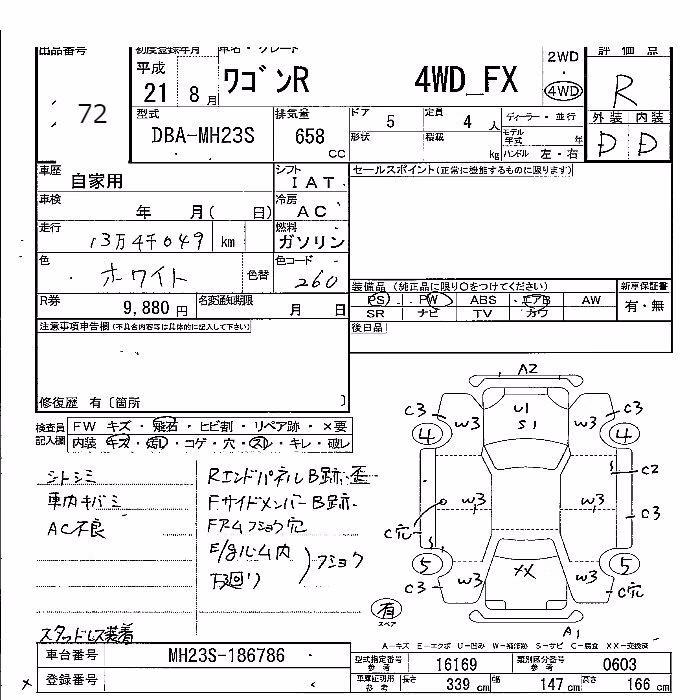 出品番号 初度登録年月 車名・グレード 2WD 評価点
72 平成 21 8月 ワゴンR 4WD_FX ・ 4WD R
型式 排気量 ドア 5 定員 4人 ディーラー・並行 外装 内装
DBA-MH23S 658 CC 形状 積載 kg モデル年式 年 ハンドル 左・右 D D
車歴 自家用 シフト IAT セールスポイント(正常に機能するものに限ります)
車検 年 月( 日) 冷房 AC
走行 13万4千049 km 燃料 ガソリン
色 ホワイト 色替 色コード 260
装備品 (純正品に限り○をつけてください) 新車保証書
R券 9,880円 名変通知期限 月 日 PS PW ABS エアB AW 有・無
SR ナビ TV カワ
注意事項申告欄(不具合内容等は具体的に記入して下さい) 後日品
修復歴 有〔箇所 〕
検査員記入欄 FW キズ・飛石・ヒビ割・リペア跡・×要
内装 キズ・汚レ・コゲ・穴・スレ・キレ・破レ
A2
C3 W3 U1 S1 W3 C3
4 4
C2
W3 W3 C3
C穴
5 5
C3 W3 XX W3 C穴
有 スペア
A1
シトシミ RエンドパネルB跡・歪
車内キバミ FサイドメンバーB跡・
AC不良 Fアムフショウ穴
E/gルーム内
下廻り フショウ
スタッドレス装着
A-キズ E-エクボ U-凹み W-補修跡 S-サビ C-腐食 XX-交換済
車台番号 MH23S-186786 型式指定番号 参考 16169 類別区分番号 参考 0603
登録番号 車庫証明用 参考 長さ 339 cm 幅 147 cm 高さ 166 cm